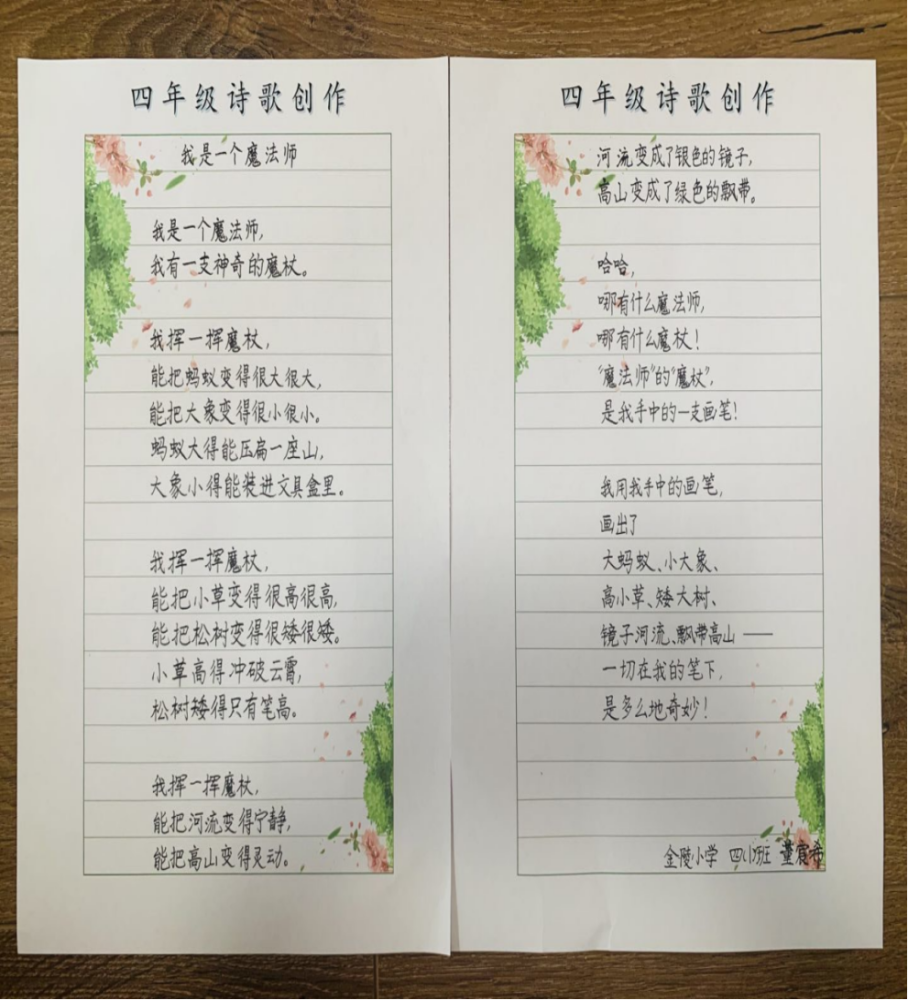 四年级诗歌创作
我是一个魔法师
我是一个魔法师,
我有一支神奇的魔杖。
我挥一挥魔杖,
能把蚂蚁变得很大很大,
能把大象变得很小很小。
蚂蚁大得能压扁一座山,
大象小得能装进文具盒里。
我挥一挥魔杖,
能把小草变得很高很高,
能把松树变得很矮很矮。
小草高得冲破云霄,
松树矮得只有笔高。
我挥一挥魔杖,
能把河流变得宁静,
能把高山变得灵动。
四年级诗歌创作
河流变成了银色的镜子,
高山变成了绿色的飘带。
哈哈,
哪有什么魔法师,
哪有什么魔杖!
“魔法师”的“魔杖”,
是我手中的一支画笔!
我用我手中的画笔,
画出了
大蚂蚁、小大象、
高小草、矮大树、
镜子河流、飘带高山——
一切在我的笔下,
是多么地奇妙!
金陵小学 四(1)班 董宸希